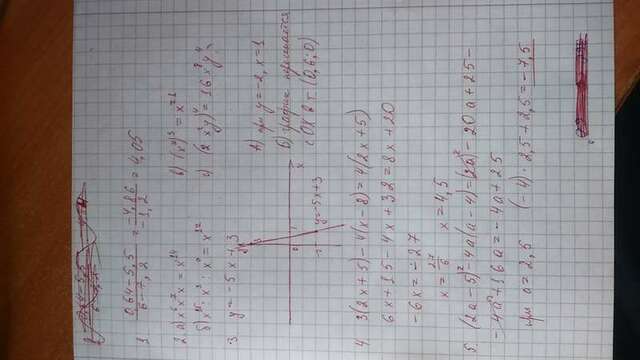 1. (0,64-5,5)/(6-7,2) = (-4,86)/(-1,2) = 4,05
2. а) x⁶x⁷x = x¹⁴ в) (x⁷)³ = x²¹
б) : x³ : x⁰ = x¹² г) (2x²y)⁴ = 16x⁸y⁴
3. y = -5x+3
А) при y=-2, x=1
Б) график пересекается
с OX в т. (0,6;0)
x
1
y=-5x+3
4. 3(2x+5)-4(x-8)=4(2x+5)
6x+15-4x+32=8x+20
-6x=-27
x=27/6 x=4,5
5. (2a-5)²-4a(a-4)=(2a)²-20a+25-
-4a²+16a=-4a+25
при a=2,5 (-4)·2,5+2,5=-7,5